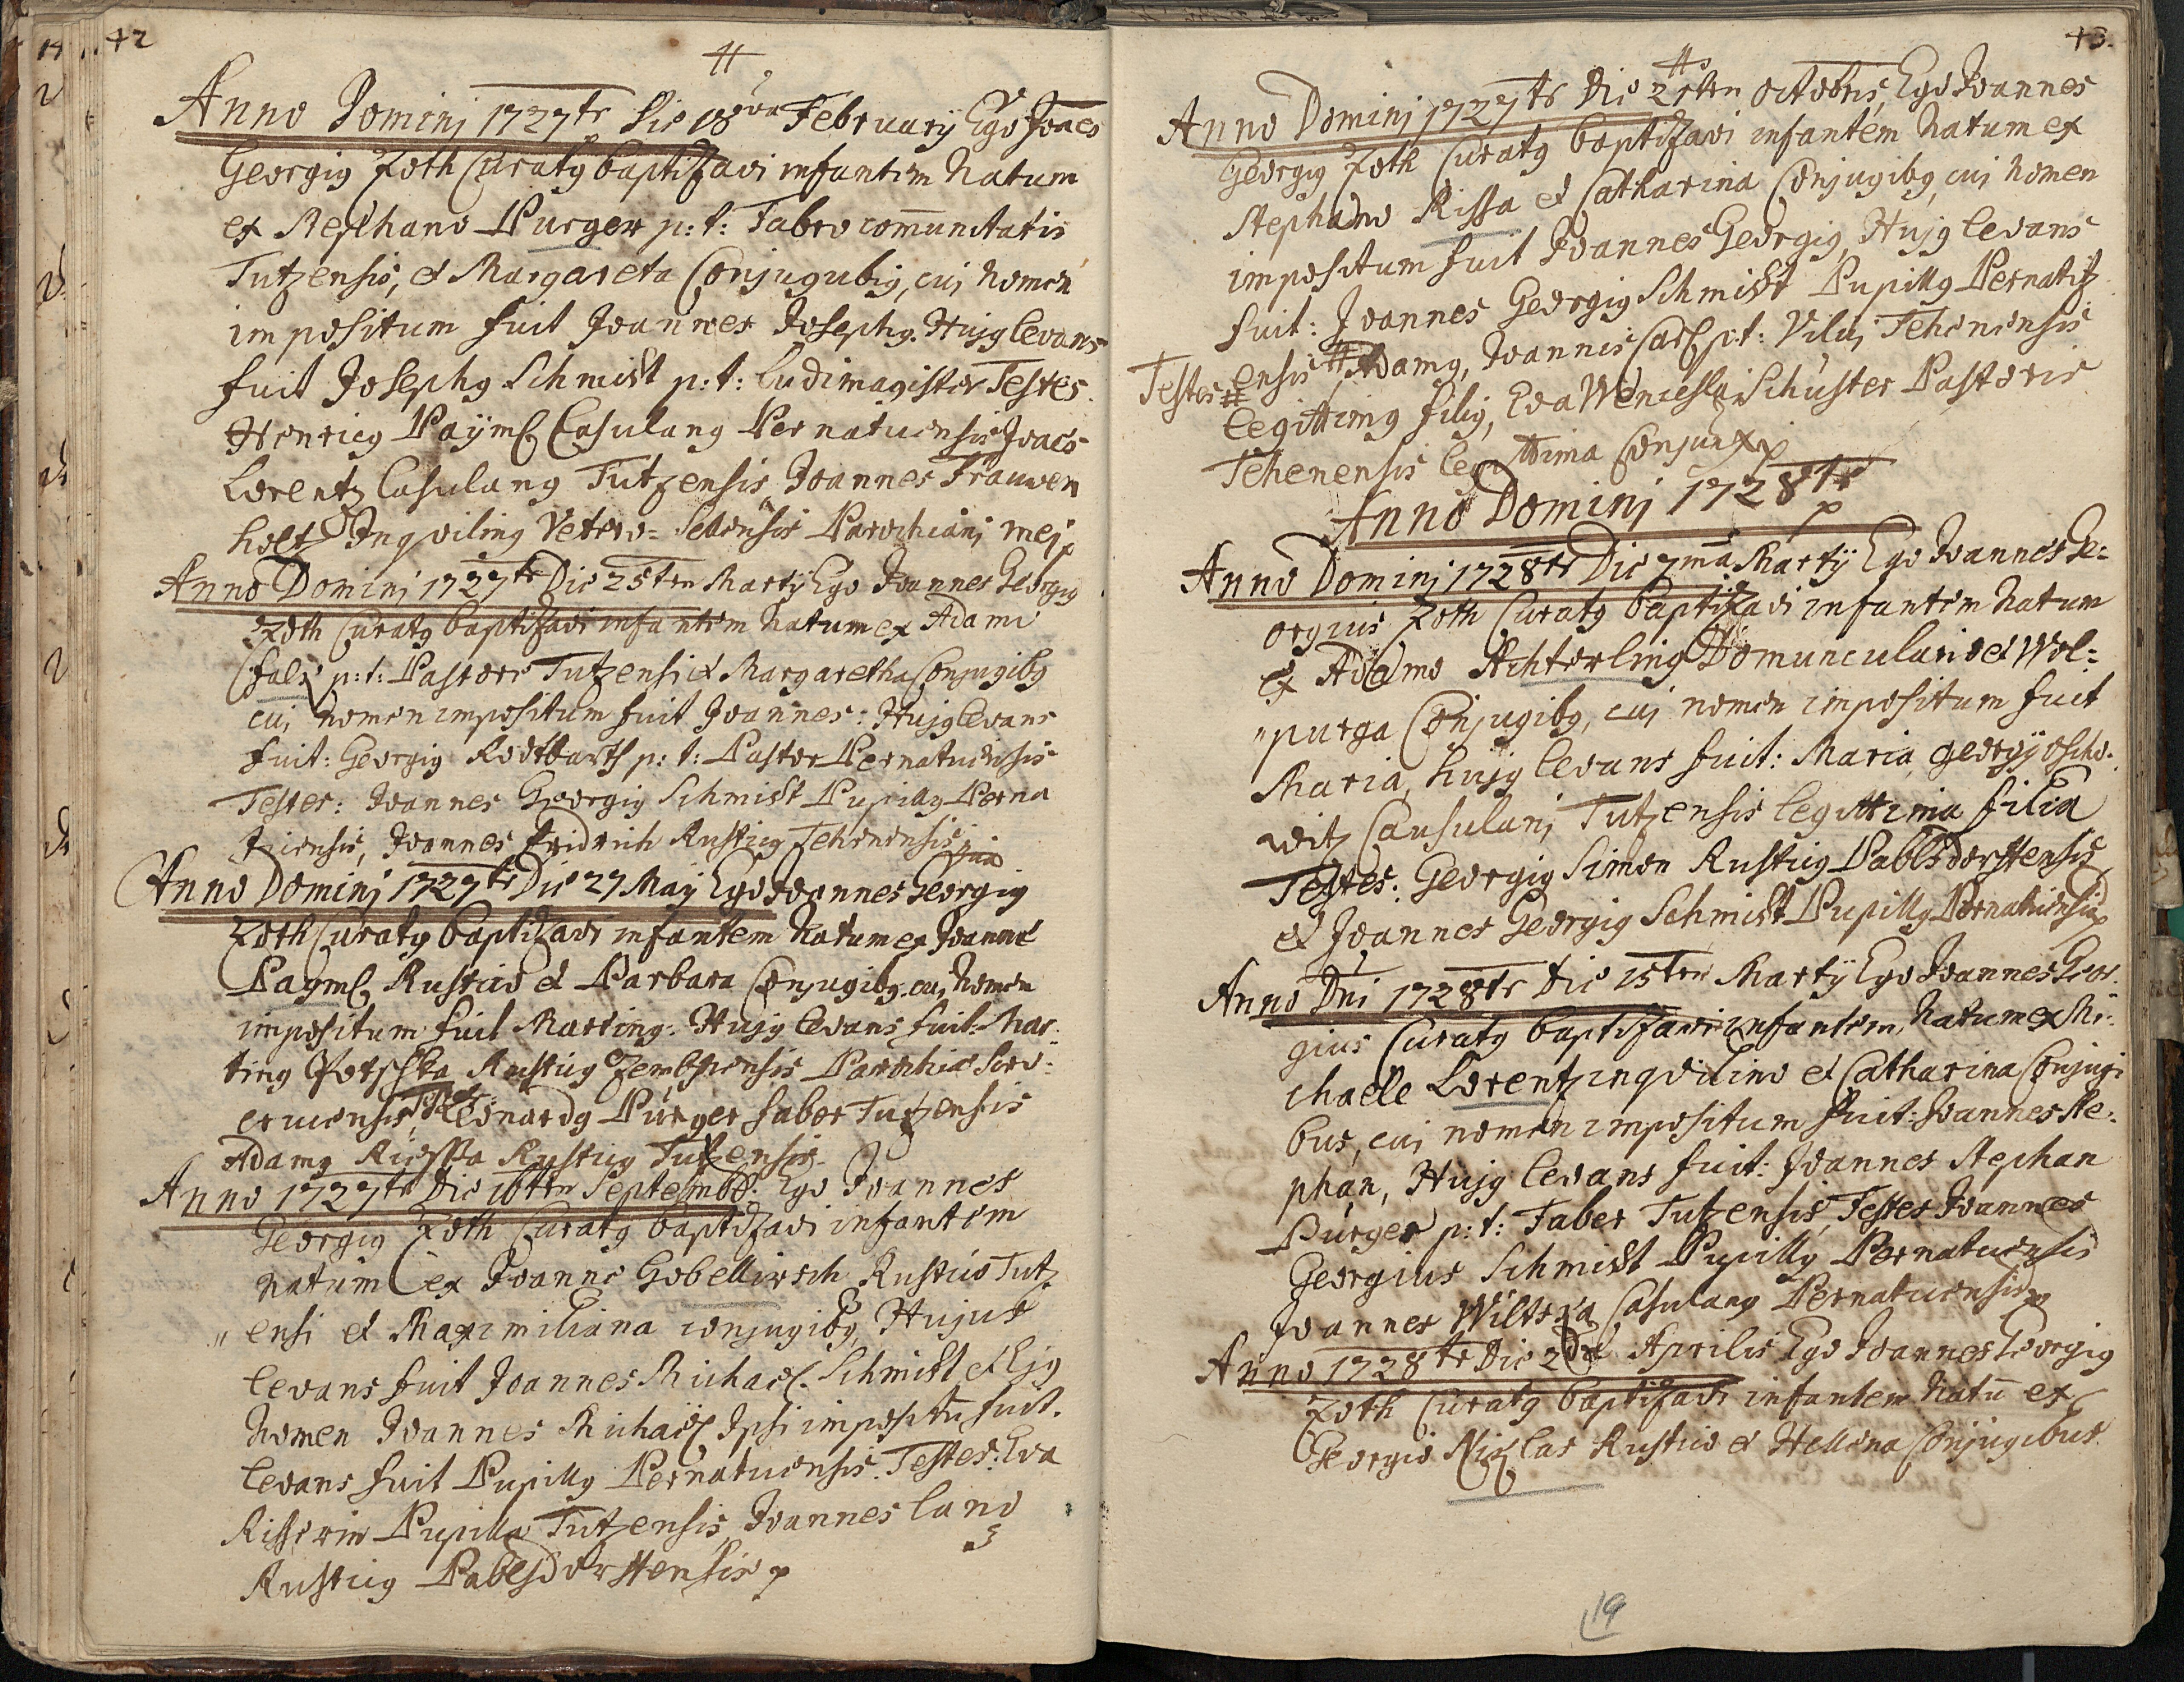 42
Anno Dominj 1727 Die 18va February Ego Joaēs
Georgig Zoth Curatg baptizavi infantem Natum
ex Stephano Purger p: t: Fabro com̄unitatis
Tutzensis, et Margareta Conjugubig, cuj nomen
impositum fuit Joannes Josephg. Hujg levans
fuit Josephg Schmidt p: t: Ludimagister Testes
Henricg Paÿml Casulang Pernaticensis Joaēs
Lorentz Casulang Tutzensis, Joannes Frauwen
holtz Inqviling Vetero= Sedlensis Parochianj mej
Anno Dominj 1727 Die 25ten Martÿ Ego Joannes Georgig
Zoth Curatg baptizavi infantem Natum ex Adamo
p: t: Pastore Tutzensi et Margaretha Conjugibg
cuj nomen impositum fuit Joannes: Hujg levans
fuit: Georgig Rodtbarth p: t: Pastor Pernaticensis
Testes: Joannes Georgig Schmidt Pupillg Perna
ticensis, Joannes Fridrich Rusticg Tehenensis
Anno Dominj 1727 Die 27 Maÿ Ego Joannes Georgig
Zoth Curatg baptizavi infantem Natum ex Joanne
Payml Rustico et Barbara Conjugibg. cuj Nomen
impositum fuit Marting: Hujg levans fuit: Mar:
ting Rusticg Parochiae
Testes: Leonardg Purger faber Tutzensis
Adamg Rusticg Tutzensis.
Anno 1727 Die 16ten Septembr: Ego Joannes
Georgig Zoth Curatg baptizavi infantem
natum ex Joanne Gobellirsch Rustico Tutz
„ ensi et Maximiliana conjugibg, Hujus
levans fuit Joannes Michael Schmidt et Ejg
Nomen Joannes Michael Ipsi impositū fuit.
levans fuit Pupillg Pernaticensis. Testes: Eva
Pupilla Tutzensis, Joannes land
Rusticg Pablsdorffensis
43.
Anno Dominj 1727 Die 21ten octobris, Ego Joannes
Georgig Zoth Curatg baptizavi infantem Natum ex
Stephano Rissa et Catharina Conjugibg, cuj nomen
impositum fuit Joannes Georgig, Hujg levans
fuit: Joannes Georgig Schmidt Pupillg Pernatic
Testes # ensis # Adamg, Joannis p: t: Tehenensis
legittimg filig, Eva Wenceslai Schuster Pastoris
Tehenensis legittima Conjunx
Anno Dominj 1728
Anno Dominj 1728 Die 7ma Martÿ Ego Joannes Ge=
orgius Zoth Curatg baptizavi infantem Natum
ex Adamo Achterling Domunculario et Wol=
„purga Conjugibg, cuj nomen impositum fuit
Maria, hujg levans fuit: Maria, georgÿ
witz Causulanj Tutzensis legittima filia
Testes: Georgig Simon Rusticg Pablsdorffensis
et Joannes Georgig Schmidt Pupillg Pernaticensis
Anno Dnī 1728 Die 15ten Martÿ Ego Joannes Geor:
gius Curatg baptizavi infantem Natum ex Mi:
chaele Lorentz inqvilino et Catharina Conjugi
bus, cuj nomen impositum fuit: Joannes Ste:
phan, Hujg levans fuit: Joannes Stephan
Pürger p: t: Faber Tutzensis, Testes Joannes
Georgius Schmidt Pupillg Pernaticensis
Joannes Casulang Pernaticensis
Anno 1728 Die 2da Aprilis Ego Joannes Georgig
Zoth Curatg baptizavi infantem Natū ex
Georgio Niklas Rustico et Hellena Conjugibus
19